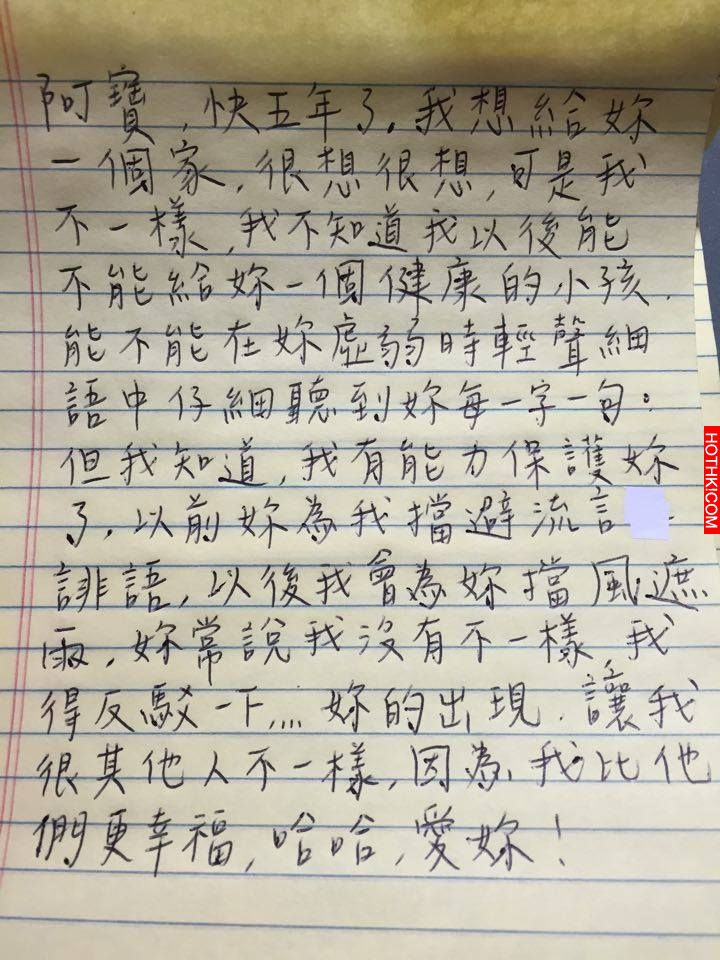 阿寶，快五年了。我想給妳
一個家，很想很想，可是我
不一樣，我不知道我以後能
不能給妳一個健康的小孩，
能不能在妳虛弱時輕聲細
語中仔細聽到妳每一字一句；
但我知道，我有能力保護妳
了，以前妳為我擋避流言
誹語，以後我會為妳擋風遮
雨，妳常說我沒有不一樣，我
得反駁一下... 妳的出現，讓我
很其他人不一樣，因為，我比他
們更幸福，哈哈，愛妳！
HOTHK.COM